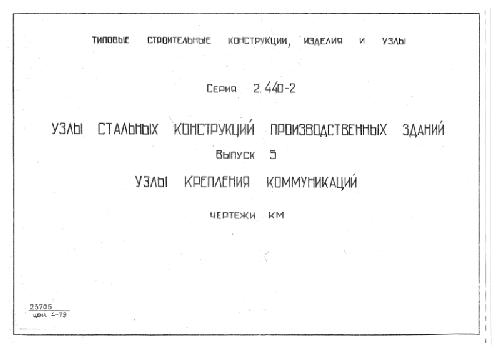 ТИПОВЫЕ СТРОИТЕЛЬНЫЕ КОНСТРУКЦИИ, ИЗДЕЛИЯ И УЗЛЫ
СЕРИЯ 2.440-2
УЗЛЫ СТАЛЬНЫХ КОНСТРУКЦИЙ ПРОИЗВОДСТВЕННЫХ ЗДАНИЙ
ВЫПУСК 5
УЗЛЫ КРЕПЛЕНИЯ КОММУНИКАЦИЙ
ЧЕРТЕЖИ КМ
ЦЕНА 2-79